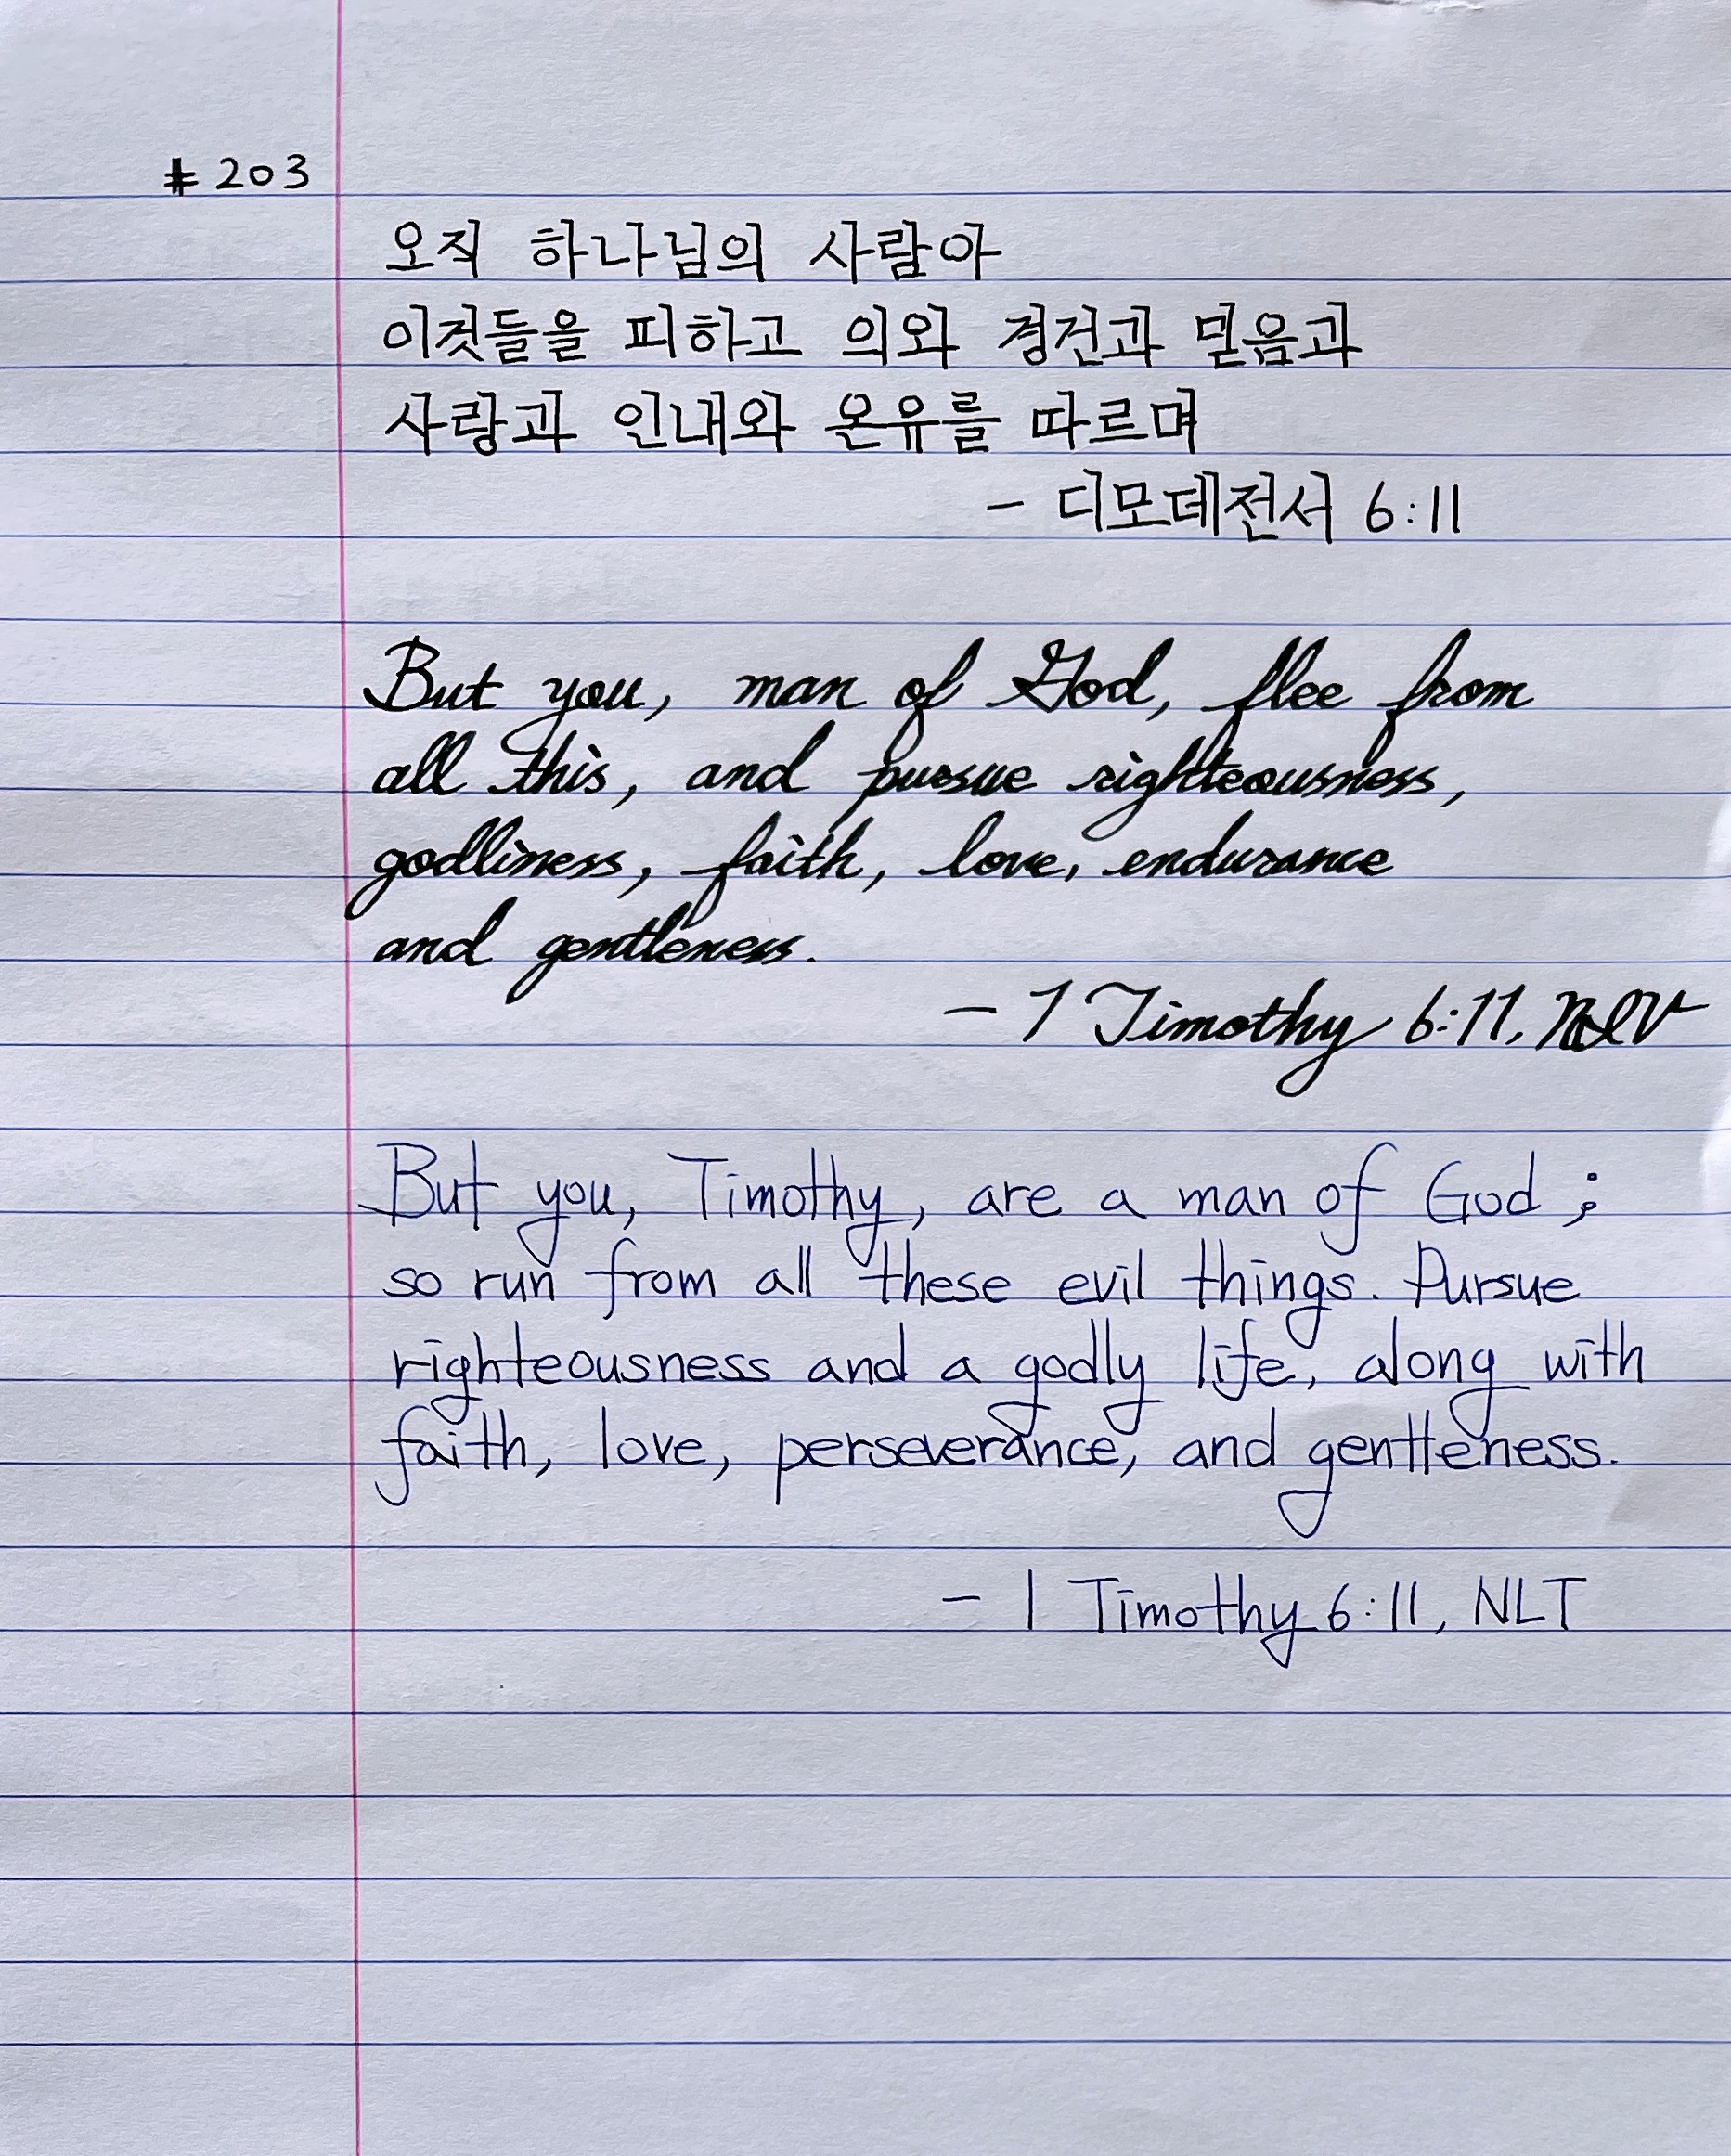 #203
오직 하나님의 사람아
이것들을 피하고 의와 경건과 믿음과
사랑과 인내와 온유를 따르며
- 디모데전서 6:11
But you, man of God, flee from
all this, and pursue righteousness,
godliness, faith, love, endurance
and gentleness.
- 1 Timothy 6:11, NIV
But you, Timothy, are a man of God;
so run from all these evil things. Pursue
righteousness and a godly life, along with
faith, love, perseverance, and gentleness.
- 1 Timothy 6:11, NLT